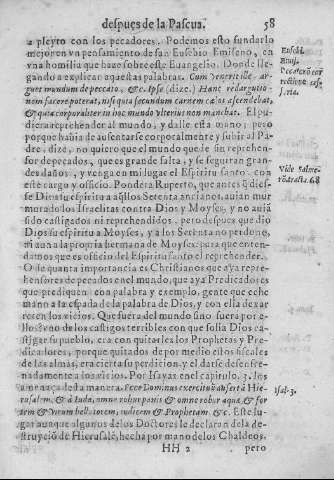 despues de la Pascua. 58
a pleyto con los pecadores. Podemos esto fundarlo
mejor en vn pensamiento de san Eusebio Emiseno, en
vna homilia que haze sobre este Euangelio. Donde lle-
gando a explicar aquestas palabras. Cum venerit ille ar-
guet mundum de peccato, &c. Ipse (dize) Hanc redargutio-
nem facere poterat, nisi quia secundum carnem cælos ascendebat,
& quia corporaliter in hoc mundo vlterius non manebat. El pu-
diera reprehender al mundo, y dalle esta mano; pero
porque hauia de ausentarse corporalmente y subir al Pa-
dre, dize, no quiero que el mundo quede sin reprehen-
sor de pecados, que es grande falta, y se seguiran gran-
des daños, y venga en mi lugar el Espiritu santo con
este cargo y officio. Pondera Ruperto, que antes q̃ dies-
se Dios su espiritu a aq̃llos Setenta ancianos, auian mur
murado los Israelitas contra Dios y Moyses, y no auiã
sido castigados ni reprehendidos, pero despues que dio
Dios su espiritu a Moyses, y a los Setenta no perdonò,
ni aun a la propria hermana de Moyses. para que enten-
damos que es officio del Espiritu santo el reprehender.
O de quanta importancia es Christianos que aya repre-
hensores de pecados en el mundo, que aya Predicadores
que prediquen con palabra y exemplo, gente que eche
mano a la espada de la palabra de Dios, y con ella dexar
resen los vicios. Que fuera del mundo sino fuera por e-
llos? vno de los castigos terribles con que solia Dios ca-
stigar su pueblo, era con quitarles los Prophetas y Pre-
dicadores, porque quitados de por medio estos fiscales
de las almas, era cierta su perdicion, y el darse desen-
frenadamente a los vicios. Por Isayas en el capitulo. 3. los
amenaza desta manera. Ecce Dominus exercituũ auferet à Hie-
rusalem, & à Iuda, omne robur panis & omne robur aquæ & for
tem & virum bellatorem, iudicem & Prophetam. &c. Este lu-
gar aunque algunos de los Doctores le declaran de la de-
struyciõ de Hierusalẽ, hecha por mano de los Chaldeos.
HH 2 pero
Eusebi.
Emis.
Vide Salme-
rõ
Isai. 3.